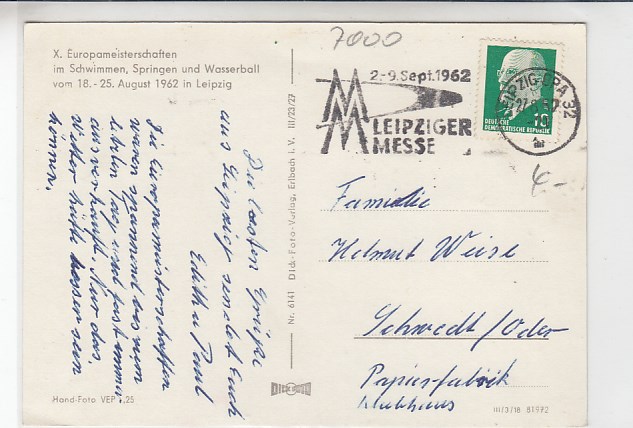 7000
X. Europameisterschaften
im Schwimmen, Springen und Wasserball
vom 18.-25. August 1962 in Leipzig
2.-9. Sept. 1962
MM
LEIPZIGER
MESSE
LEIPZIG-BPA 32
10
DEUTSCHE
DEMOKRATISCHE REPUBLIK
Die besten Grüße
aus Leipzig sendet Euch
Edith u Paul
Die Europameisterschaften
waren spannend bis zum
letzten Tag und fast immer
ausverkauft. Nur das
Wetter hätte besser sein
können.
Nr. 6141 Dick-Foto-Verlag, Erlbach i. V. III/23/27
Familie
Helmut Weise
Schwedt/Oder
Papierfabrik
Klubhaus
Hand-Foto VEP -,25
III/3/18 81972